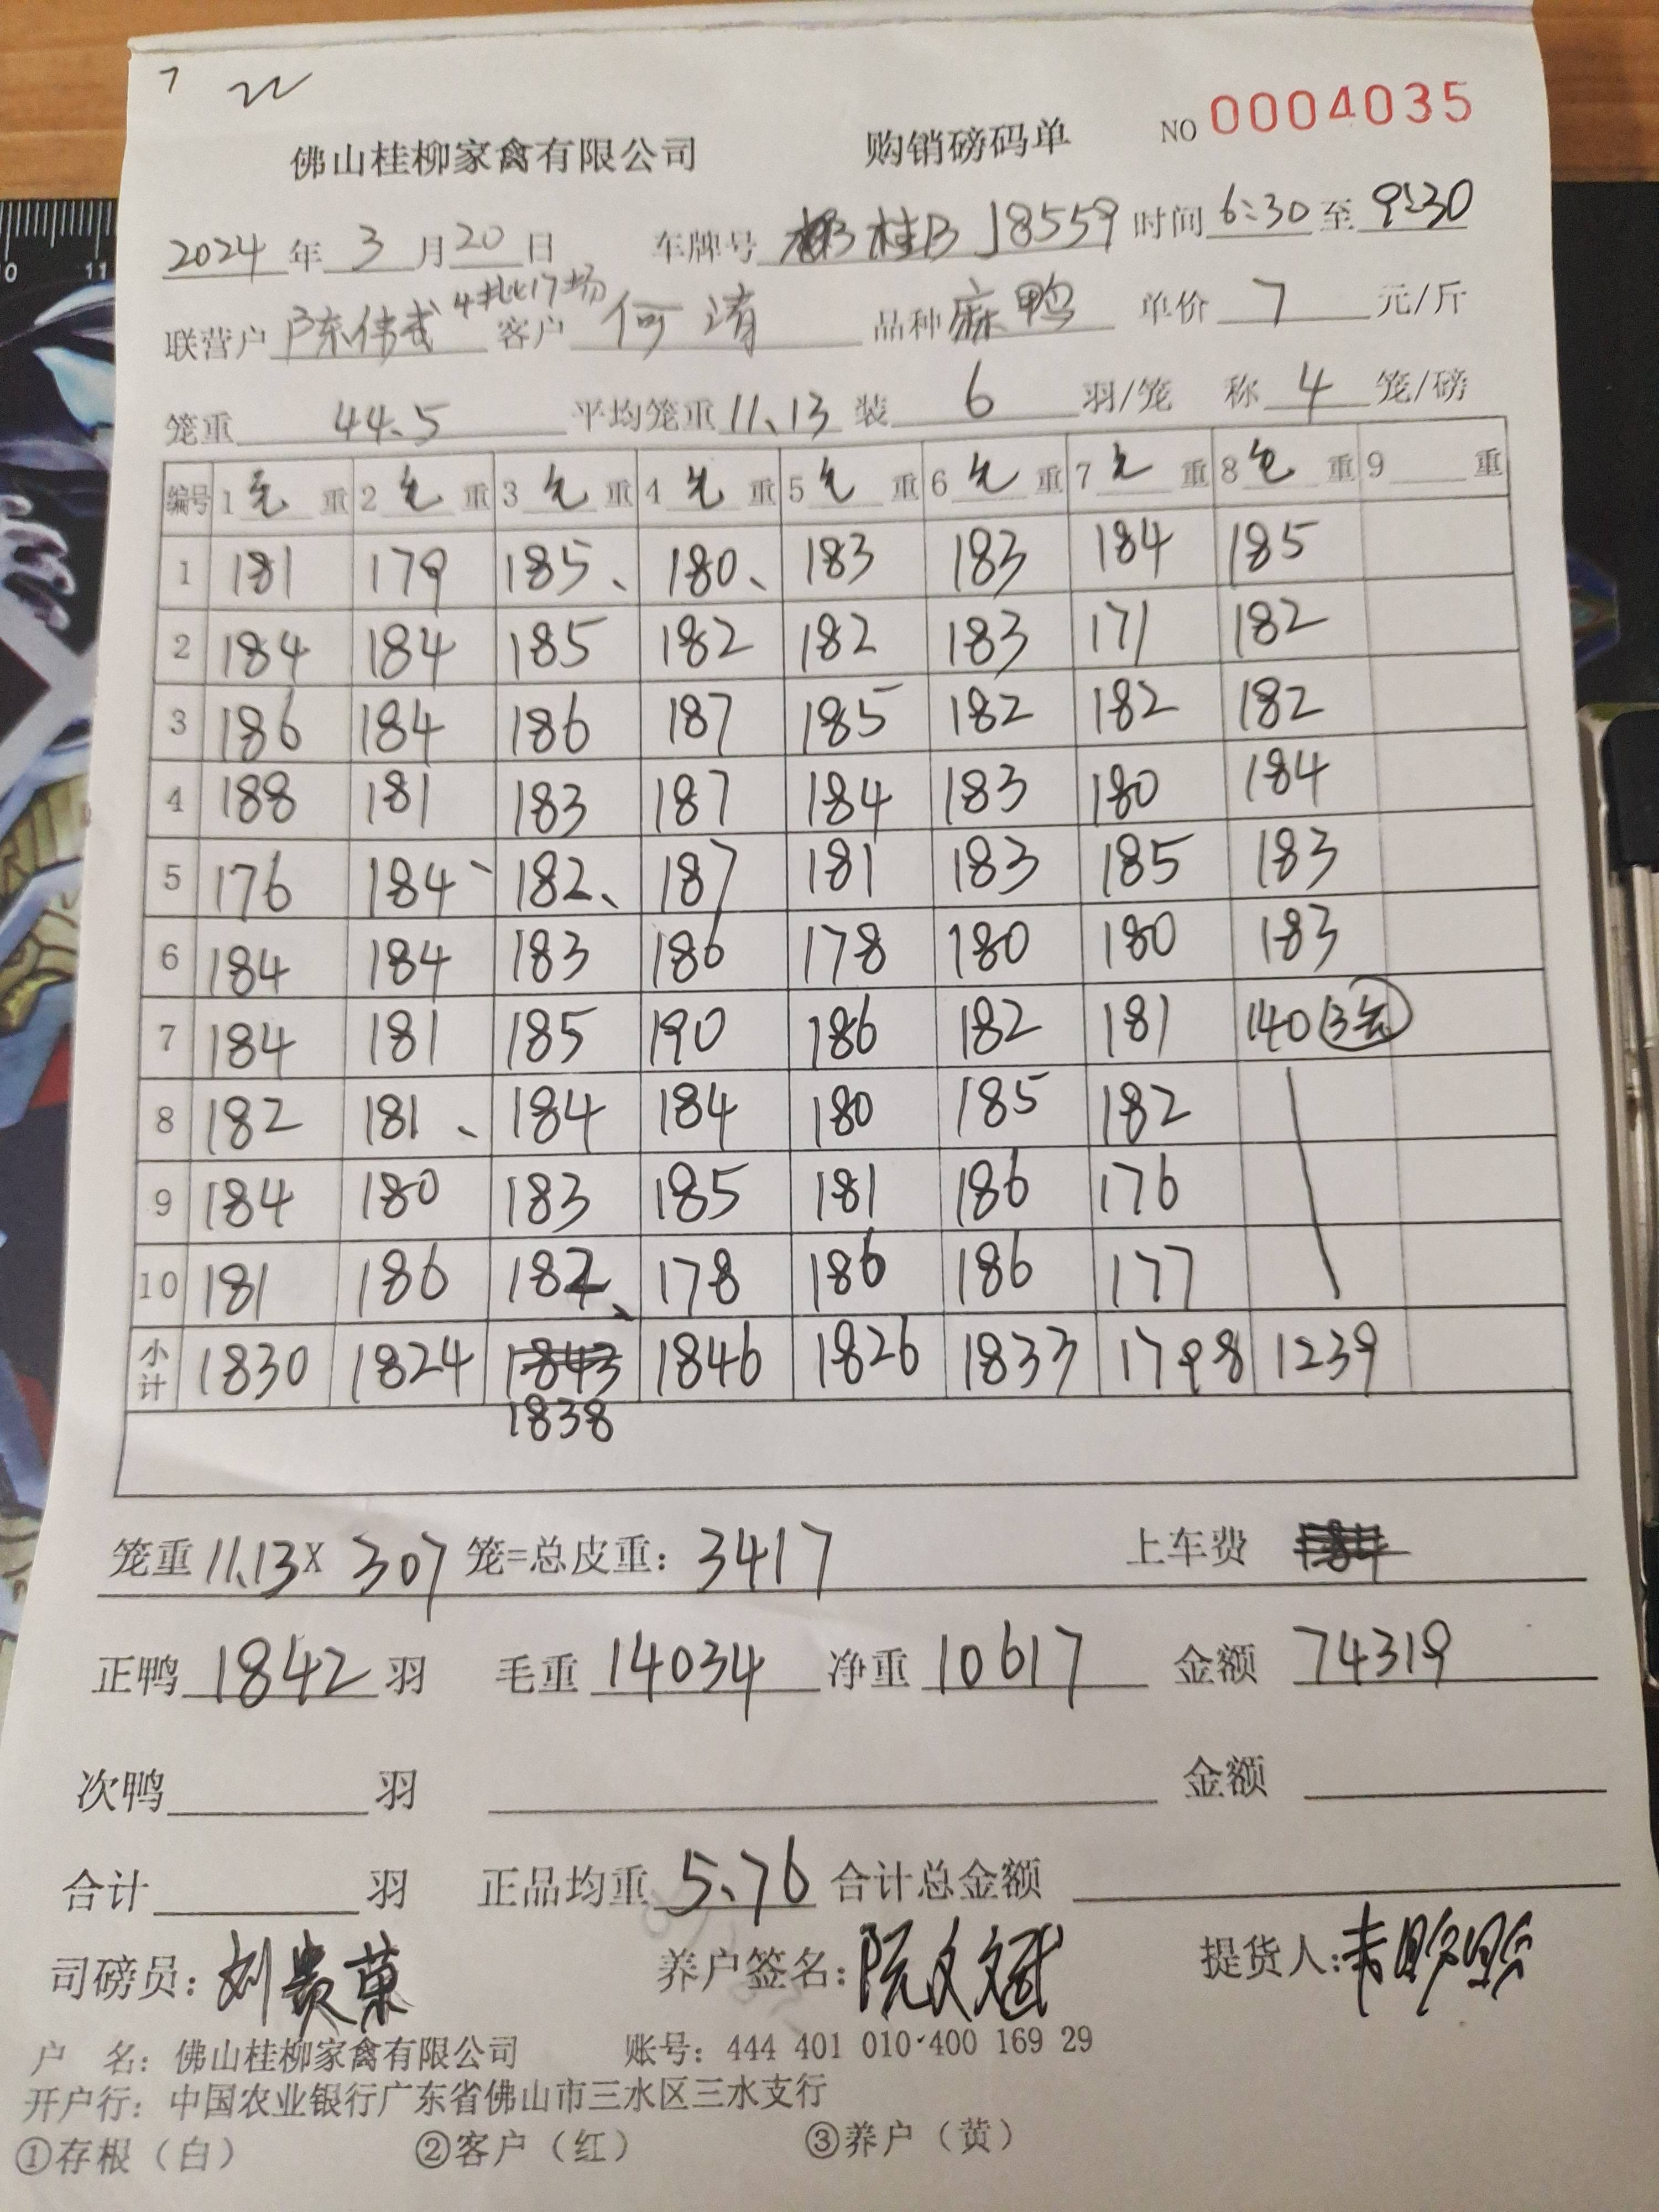 7 22
佛山桂柳家禽有限公司 购销磅码单 NO 0004035
2024 年 3 月 20 日 车牌号 桂B J8559 时间 6:30 至 9:30
4批17场
联营户 陈伟武 客户 何清 品种 麻鸭 单价 7 元/斤
笼重 44.5 平均笼重 11.13 装 6 羽/笼 称 4 笼/磅
编号 1 毛 重 2 毛 重 3 毛 重 4 毛 重 5 毛 重 6 毛 重 7 毛 重 8 毛 重 9 重
1 181 179 185、 180、 183 183 184 185
2 184 184 185 182 182 183 171 182
3 186 184 186 187 185 182 182 182
4 188 181 183 187 184 183 180 184
5 176 184、 182、 187 181 183 185 183
6 184 184 183 186 178 180 180 183
7 184 181 185 190 186 182 181 140 (3笼)
8 182 181、 184 184 180 185 182
9 184 180 183 185 181 186 176
10 181 186 182、 178 186 186 177
小计 1830 1824 1843 1846 1826 1833 1798 1239
1838
笼重 11.13 X 307 笼=总皮重: 3417 上车费
正鸭 1842 羽 毛重 14034 净重 10617 金额 74319
次鸭 羽 金额
合计 羽 正品均重 5.76 合计总金额
司磅员: 刘贵荣 养户签名: 阮文斌 提货人:
户 名: 佛山桂柳家禽有限公司 账号: 444 401 010·400 169 29
开户行: 中国农业银行广东省佛山市三水区三水支行
①存根（白） ②客户（红） ③养户（黄）